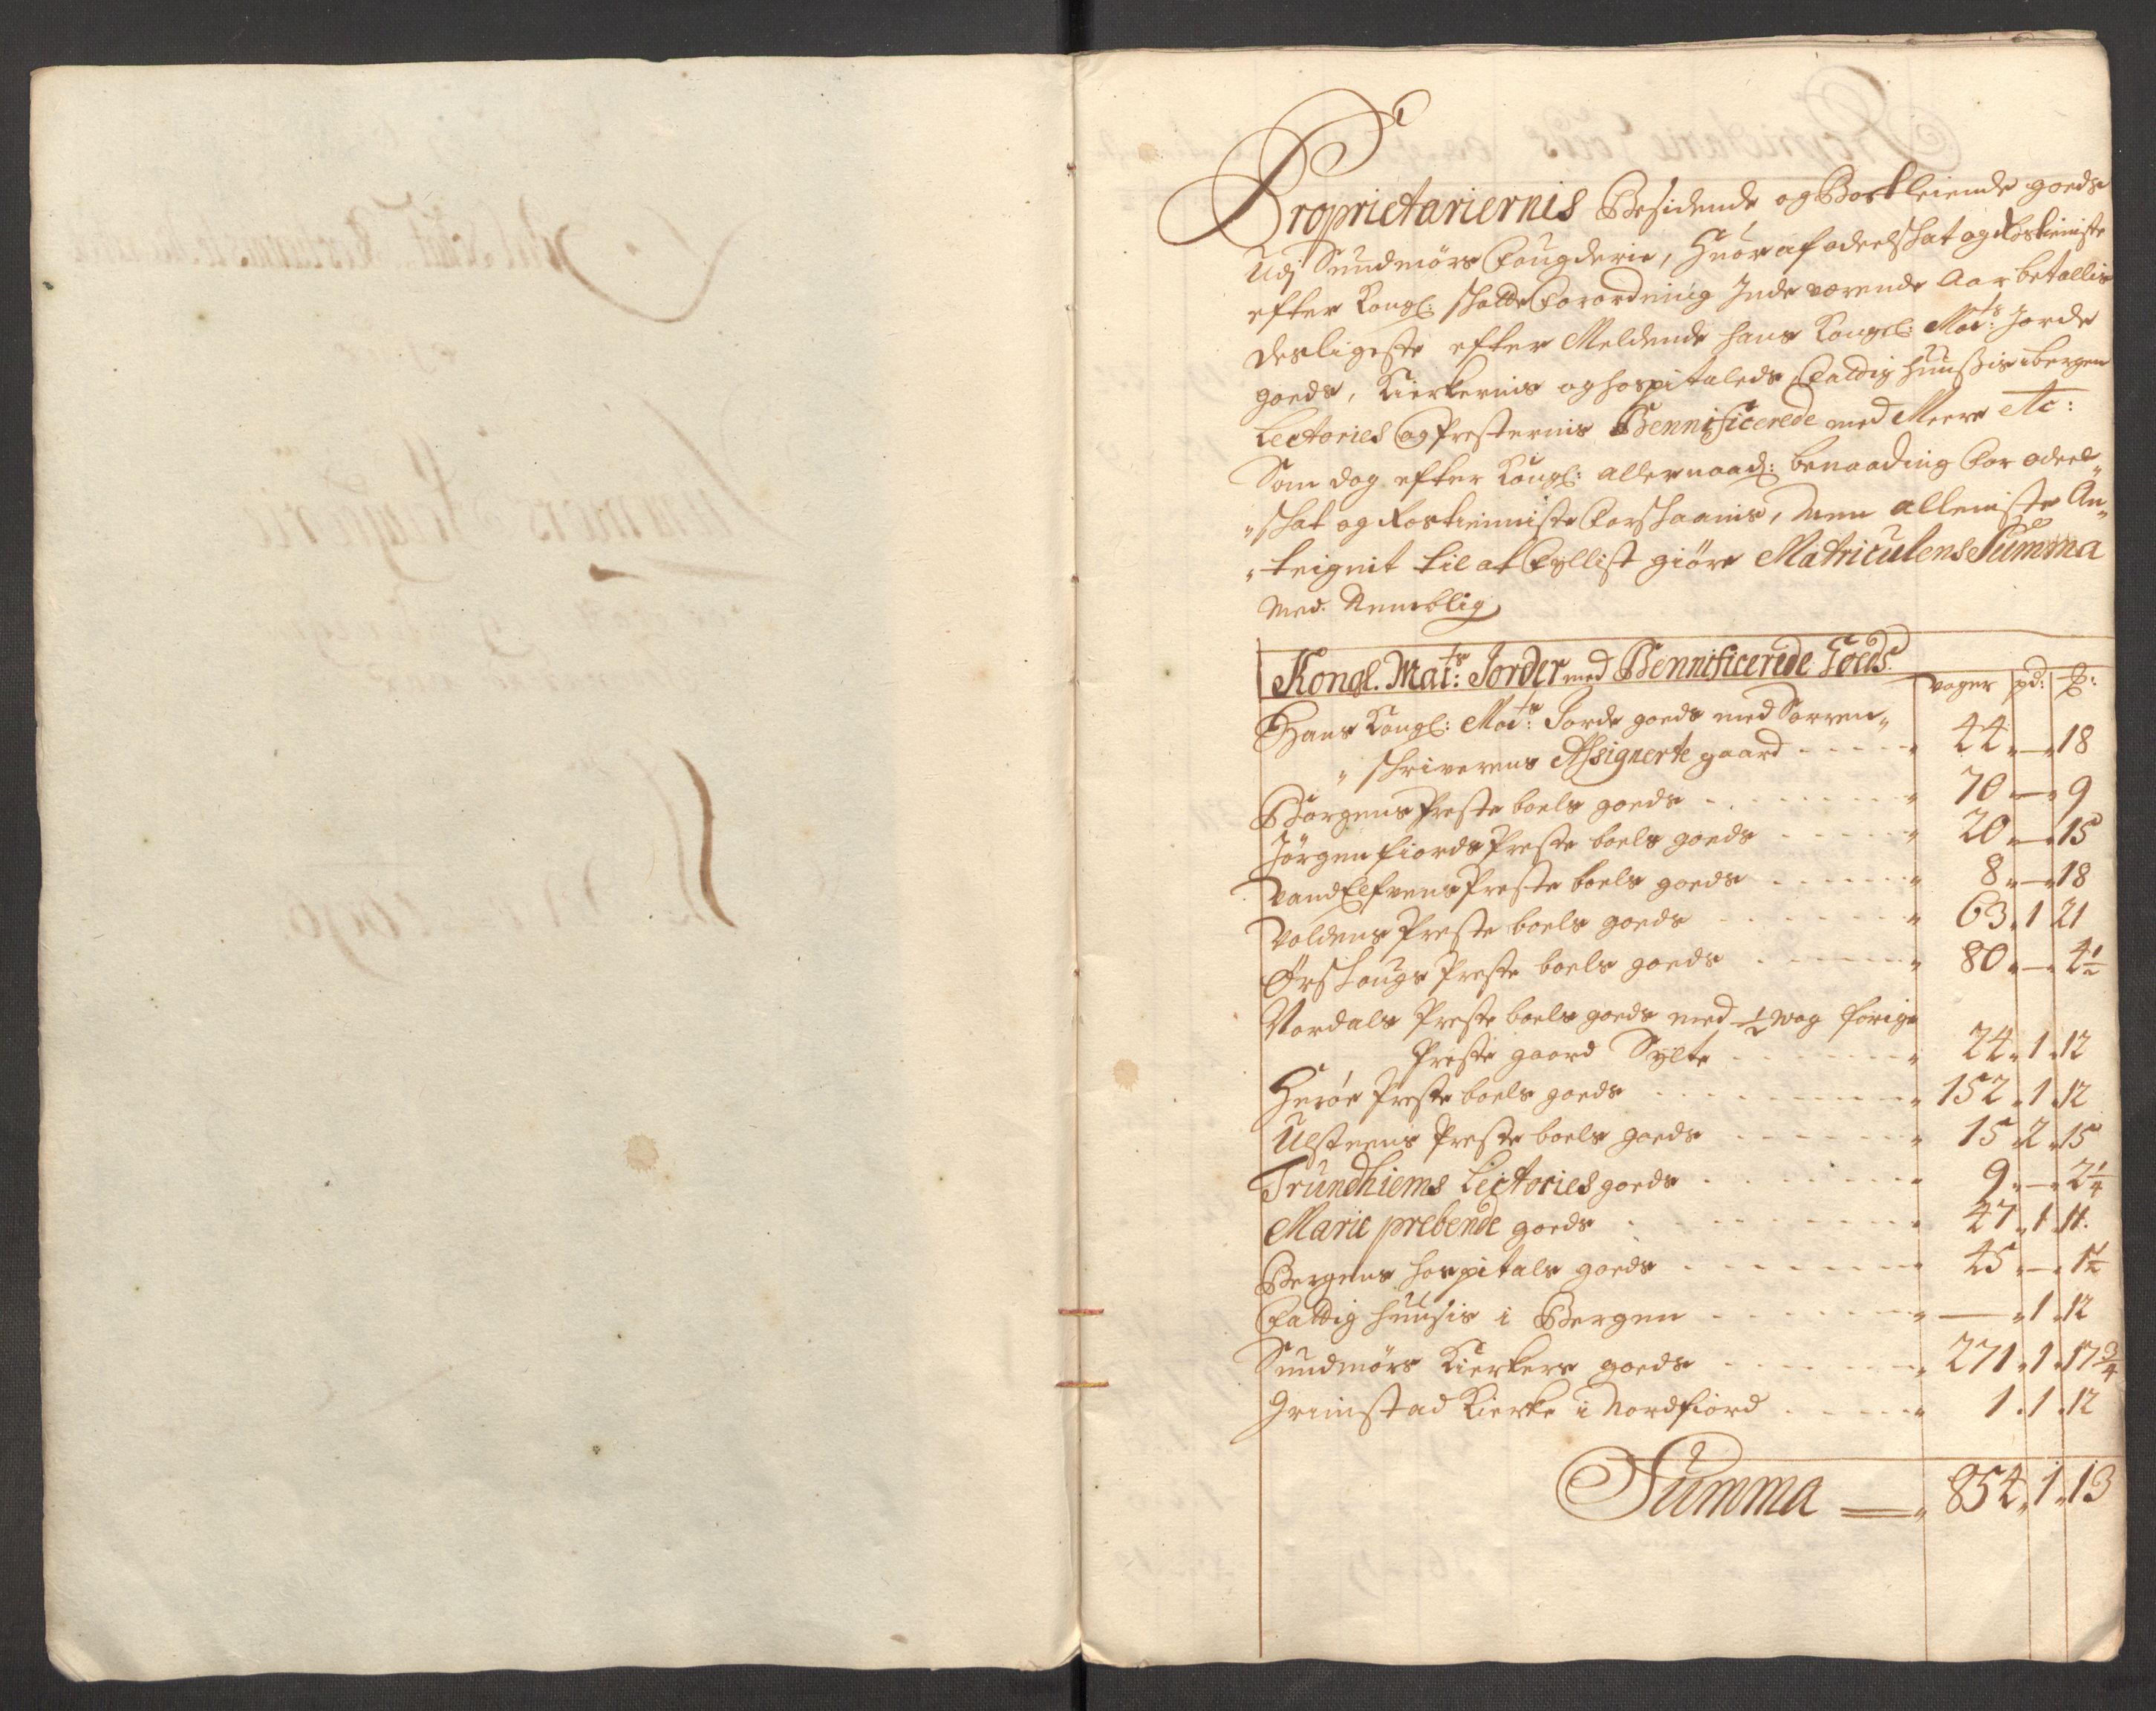 Proprietariernis Besidende og Bortleiende goeds
Udj Sundmörs Fougderie, Huor af odelschat og Rostieniste
efter Kongl: schatte Forordning Jnde værende Aar betallis
desligeste efter Meldende hans Kongel: Maits: Jorde
goeds, Kierkernis og hospitaleds, Fattig huusis i bergen
Lectories og Presternis Bennificerede med Meere etc:
Som dog efter Kongl: allernaad: benaading for odel
"schat og Rostieniste forschaanis, Men alleniste An„
„teignit til at fyllist giöre Matriculens Summa
Med. Nemblig
Kongl. Maits: Jorder med Bennificerede Goeds.
voger pd: ℔:
Hans Kongl: Maits: Jorde goeds med Sorren„
„schriverens Assignerte gaard 44 — 18
Borgens Preste boels goeds 70 — 9
Jörgenfiords Preste boels goeds 20 — 15
Vand Elfvens Preste boels goeds 8 — 18
Voldens Preste boels goeds 63 1 21
Ørschougs Preste boels goeds 80 — 4½
Nordals Preste boels goeds med ½ vog forige
Preste gaard Sylte 24 1 12
Heröe Preste boels goeds 152 1 12
Ulsteens Preste boels goeds 15 2 15
Trundhiems Lectories goeds 9 — 2¼
Marie prebende goeds 47 1 11.
Bergens hospitals goeds 45 — 1½
Fattig huusis i Bergen — 1 12
Sundmörs Kierkers goeds 271 1 17¾
Grimstad Kierke i Nordfiord 1 1 12
Summa 854 1 13